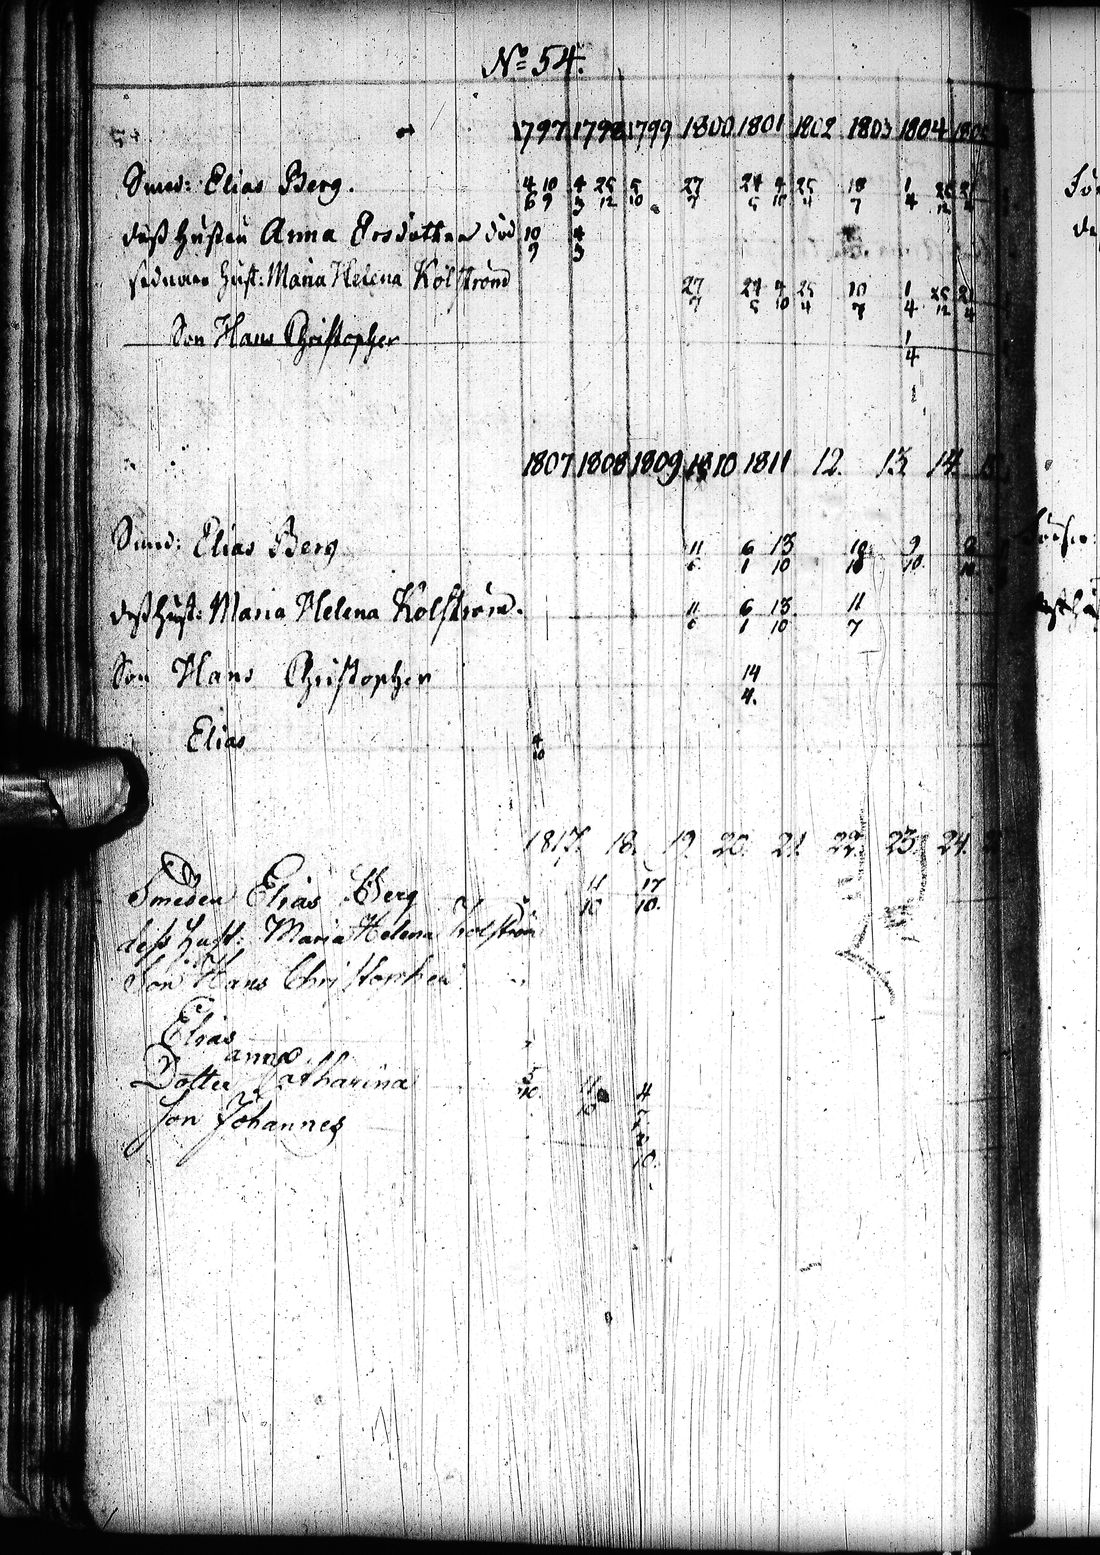 No 54.
1797 1798 1799 1800 1801 1802 1803 1804 1805
Smed: Elias Berg. 4/6 10/9 4/3 25/12 5/10 27/7 24/5 4/10 25/4 18/7 1/4 26/12 21/4
Dess Hustru Anna Ersdotter död 10/9 4/3
sednare Hust: Maria Helena Kolström 27/7 24/5 4/10 25/4 10/7 1/4 25/12 21/4
Son Hans Christopher 1/4
1807 1808 1809 1810 1811 12. 13. 14. 15
Smed: Elias Berg 11/6 6/1 13/10 18/10 9/10.
dess Hust: Maria Helena Kolström. 11/6 6/1 13/10 11/7
Son Hans Christopher 14/4.
Elias 4/10
1817. 18. 19. 20. 21. 22. 23. 24.
Smeden Elias Berg 11/10 17/10.
dess Hust: Maria Helena Kolström
Son Hans Christopher
Elias
anna
Dotter Catharina 5/10. 11/10 4
Son Johannes
10.